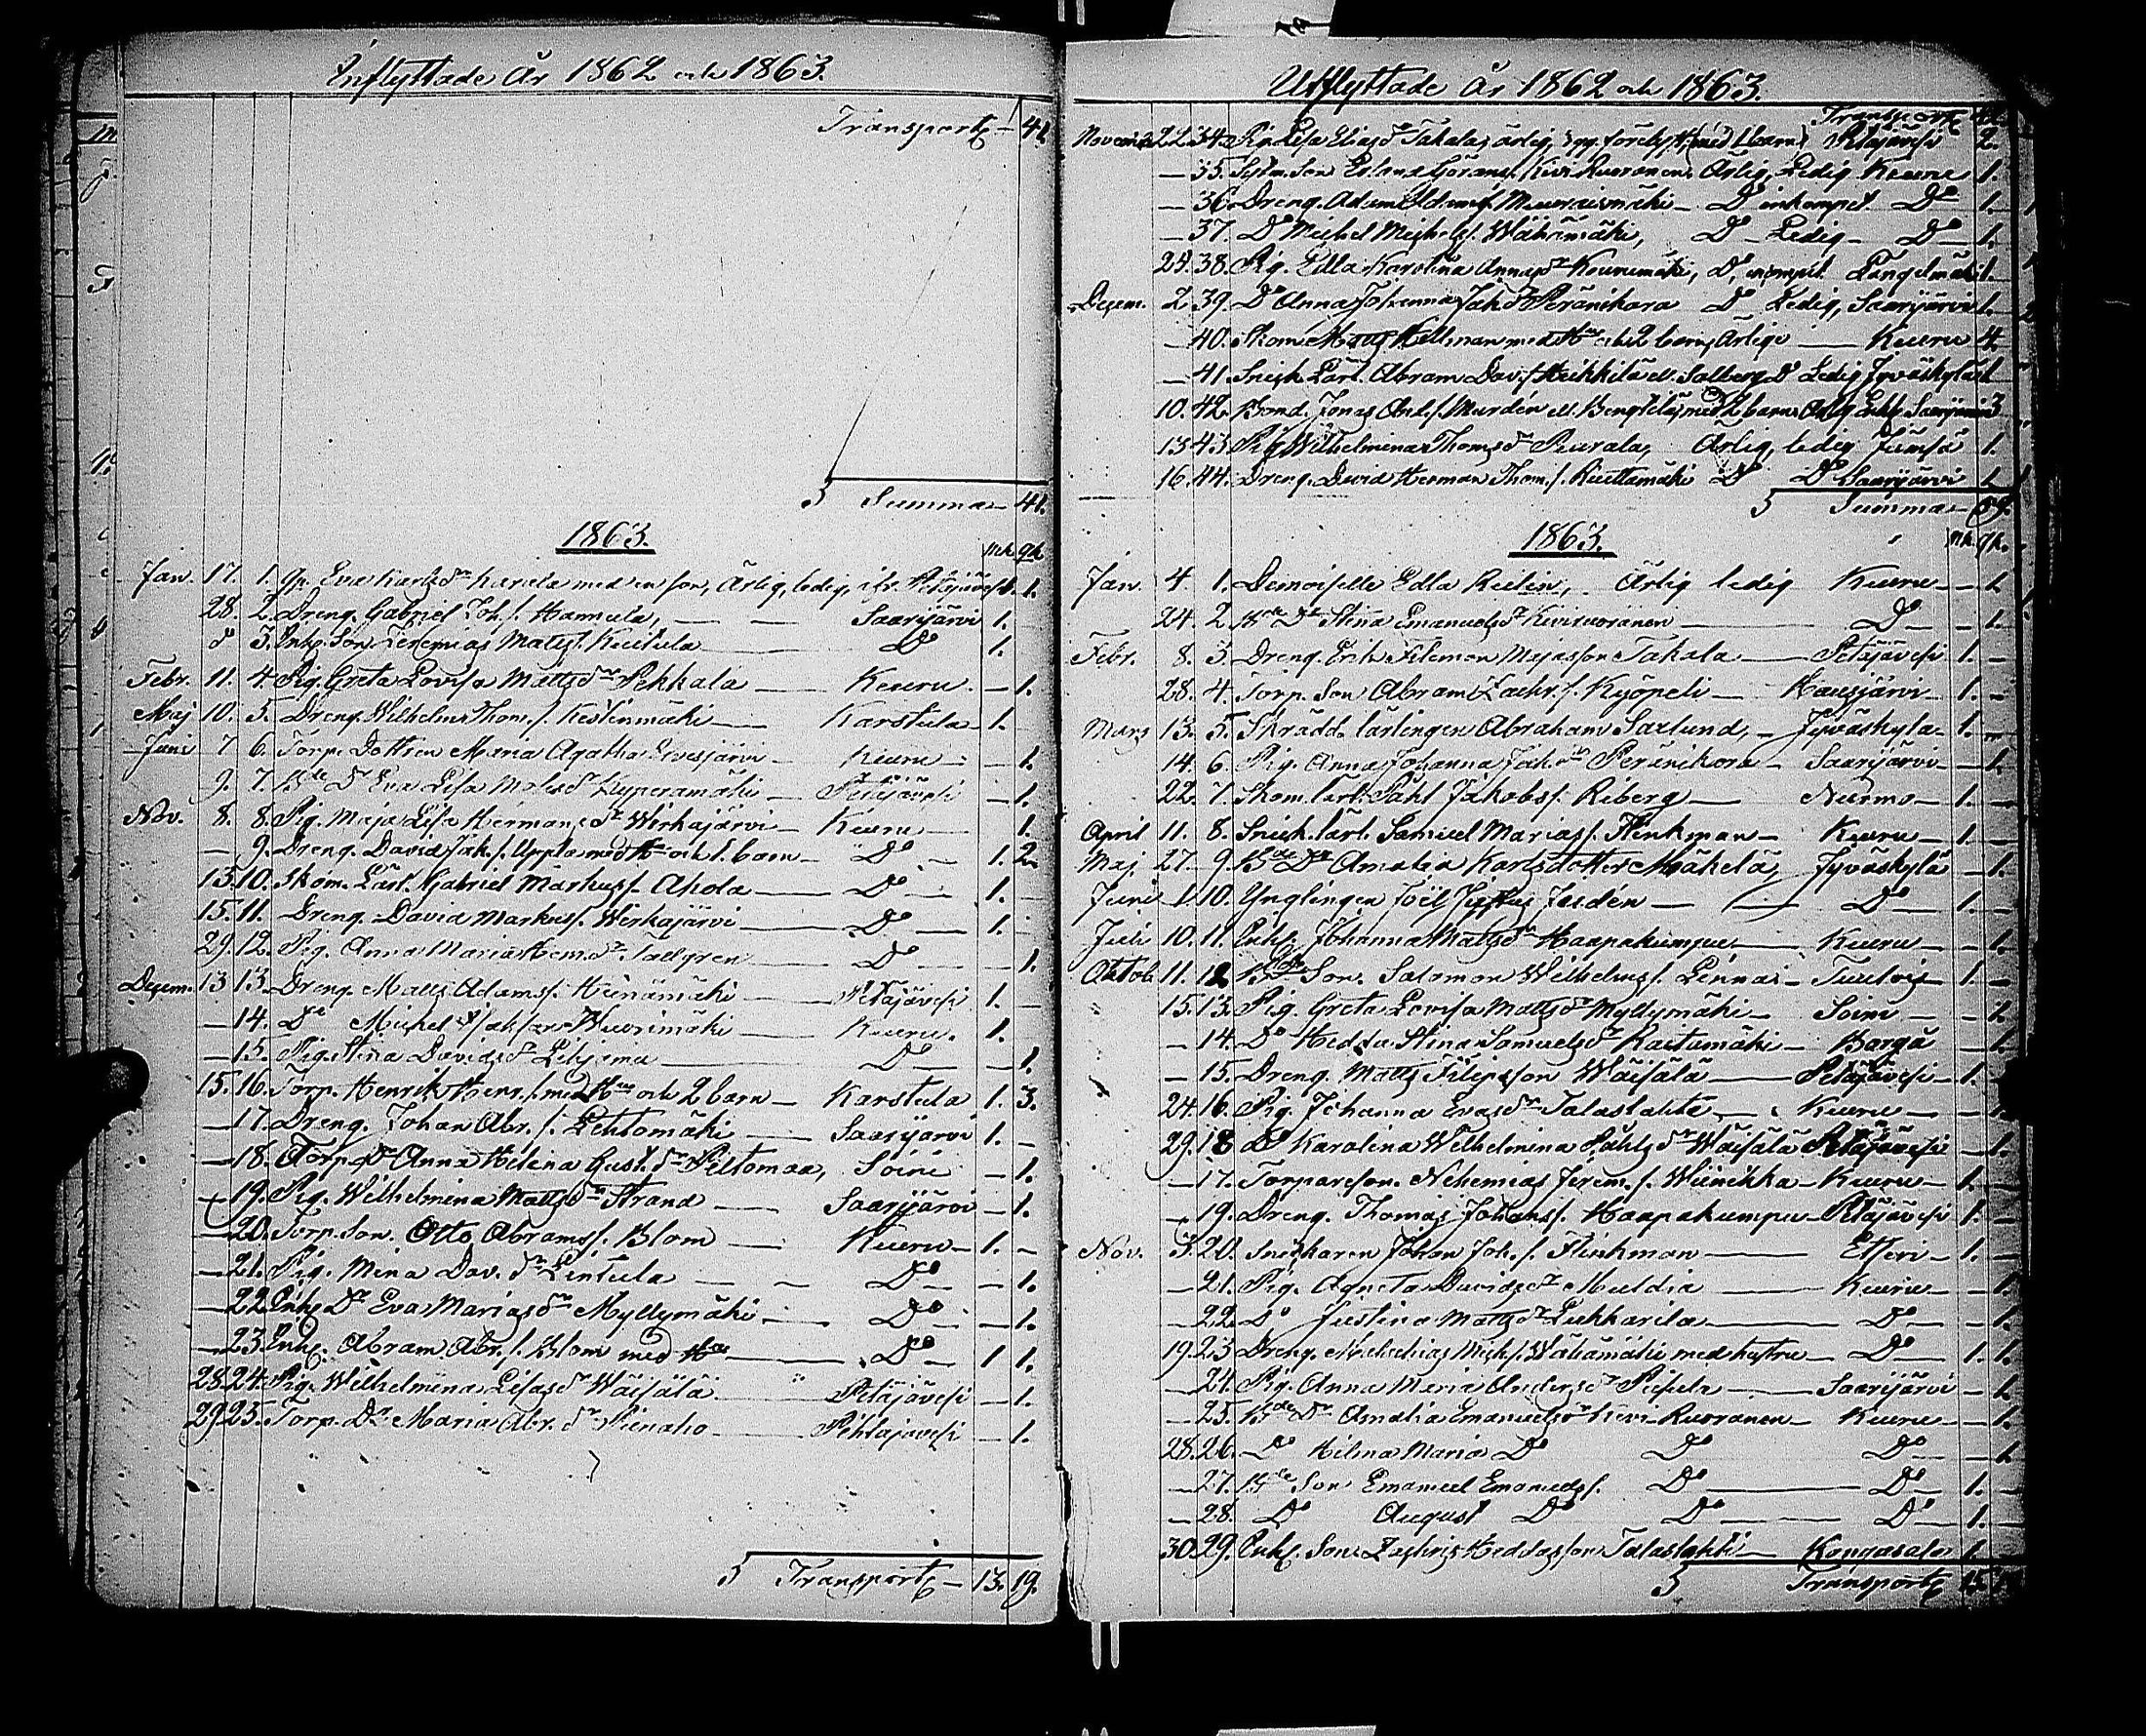 Inflyttade År 1862 och 1863.
Transport — 41.
5 Summa — 41.
1863.
Mk. qk.
Jan. 17. 1. Eva Karlsdr Karala med en son, Ärlig, ledig, ifr. Petäjävesi 1. 1.
28. 2. Dreng. Gabriel Joh. s. Hannula, — — Saarijärvi 1.
8 3. Inhs. Son Jeremias Matts s. — Do 1.
Febr. 11. 4. Pig. Greta Lovisa Mattsdr Pekkala — Keuru — 1.
Maj 10. 5. Dreng. Wilhelm Thom. s. Kestinmäki — Karstula 1.
Juni 7 6. Torp. Dottren Maria Agatha — Keuru — 1.
9. 7. Bde Dr Eva Lisa — Petäjävesi — 1.
Nov. 8. 8. Pig. Maja Lisa Hermansdr Werkajärvi — Keuru — 1.
— 9. Dreng. David Jak. s. Uppla med Hu och 1. barn — Do — 1. 2.
13. 10. Skom. Lärl. Gabriel Markuss. Ahola — Do — 1.
15. 11. Dreng. David Markuss. Werkajärvi — Do — 1.
29. 12. Pig. Anna Maria Hermdr Tallgren — Do — 1.
Decem. 13 13. Dreng. Matts Adamss. Heinämäki — Petäjävesi 1. —
— 14. Do Michel Isakson Wuorimäki — Keuru. 1.
— 15. Pig. Stina Davidsdr — Do — 1.
15. 16. Torp. Henrik Henr. s. med Hu och 2 barn — Karstula 1. 3.
— 17. Dreng. Johan Abr. s. Lehtomäki — Saarijärvi 1. —
— 18. Torp. Dr Anna Helena Gust.dr Peltomaa, Soini — 1.
— 19. Pig. Wilhelmina Mattsdr Strand — Saarijärvi — 1.
— 20. Torp. Son. Otto Abramss. Blom — Keuru — 1. —
— 21. Pig. Mina Dav.dr Lintula — — Do — 1.
— 22. Inhs Dr Eva Mariasdr Myllymäki — Do — 1.
— 23. Inhs. Abram Abr. s. Blom med Hu — Do — 1 1.
28. 24. Pig. Wilhelmina Lisasdr Wäisälä " Petäjävesi — 1.
29. 25. Torp. Dr. Maria Abr.dr Pienaho — Pehtajävesi — 1.
5 Transport — 13. 19.
Utflyttade År 1862 och 1863.
Transport
Novemb. 22. 34. Pig. Lisa Eliasdr Takala, ärlig, med 1 barn Petäjävesi 2.
— 35. Göranss. Kivi Ruoranen, Ärlig, Ledig Keuru 1.
— 36. Dreng. Adam Adamss. — Do inkompet. Do 1.
— 37. Do Michel Michelss. Wähämäki, Do — Ledig — Do — 1.
24. 38. Pig. Edla Karolina Annasdr Do, inkompet. Längelmäki 1.
Decem. 2. 39. Do Anna Johanna Jakdr Peränikara Do Ledig, Saarijärvi 1.
— 40. Skom. Matts Hellman med Hu och 2 barn, Ärlige — Keuru 4.
— 41. Snick. Lärl. Abram Dav. s. Heikkilä el. Salberg Do Ledig Jyväskylä 1
10. 42. Jonas And. s. Murdén el Bengtelä, med 2 barn, Ärlig Saarijärvi 3
13 43. Pig Wilhelmina Thomsdr Peurala, Ärlig, ledig Jämsä 1.
16. 44. Dreng. David Herman Thom. s. Do Do Saarijärvi 1
5 Summa — 59.
1863.
Mk. qk.
Jan. 4. 1. Demoiselle Edla Reilin, Ärlig ledig Keuru — 1.
24. 2. Bde Dr Stina Emanuelsdr Kiviruoranen — Do — 1.
Febr. 8. 3. Dreng. Erik Filemon Majasson Takala — Petäjävesi 1. —
28. 4. Torp. Son Abram Zachr. s. Kyöpeli — Hausjärvi — 1. —
Mars 13. 5. Skrädd. lärlingen Abraham Saxlund, — Jyväskylä — 1. —
14. 6. Pig. Anna Johanna Jak.dr Peränikara — Saarijärvi — 1.
22. 7. Skom. Lärl. Påhl Jakobss. Riberg — Nurmo — 1. —
April 11. 8. Snick. lärl. Samuel Mariass. Flinkman — Keuru — 1. —
Maj 27. 9. Bde Dr Amalia Karlsdotter Mäkelä, Jyväskylä — 1.
Juni 1. 10. Ynglingen Joël Justus Jardén — Do — 1. —
Juli 10. 11. Inhs. Johanna Mattsdr Haapakumpu — Keuru — 1.
Oktob. 11. 12. Bde Son. Salomon Wilhelms s. Lennai — Tuulois — 1. —
15. 13. Pig. Greta Lovisa Mattsdr Myllymäki — Soini — — 1.
— 14. Do Hedda Stina Samuelsdr Rautumäki — Borgå — 1.
— 15. Dreng. Matts Filipsson Wäisälä — Petäjävesi — 1. —
24. 16. Pig. Johanna Evasdr Talaslahti — Keuru — 1.
29. 18 Do Karolina Wilhelmina Påhlsdr Wäisälä Petäjävesi — 1.
— 17. Torpareson. Nehemias Jerem. s. Wiinikka — Keuru — 1. —
— 19. Dreng. Thomas Johanss. Haapakumpu — Petäjävesi 1. —
Nov. 3. 20. Snickaren Johan Joh. s. Flinkman — Etseri — 1. —
— 21. Pig. Agneta Davidsdr Muldia — Keuru — 1.
— 22. Do Justina Mattsdr Liukkarila — Do — 1.
19. 23 Dreng. Malachias Mich. s. Wähämäki med hustru — Do — 1. 1.
— 24. Pig. Anna Maria Andersdr — Saarijärvi — 1.
— 25. Bde Dr Amalia Emanuelsdr Kivi Ruoranen — Keuru — 1.
28. 26. Do Hilma Maria Do Do Do — 1.
— 27. Bde Son Emanuel Emanuelss. Do — Do — 1. —
— 28. Do August Do Do — Do — 1. —
30. 29. Inhs. Son Zachris Heddasson Talaslahti — Kangasala 1.
5 Transport 15.